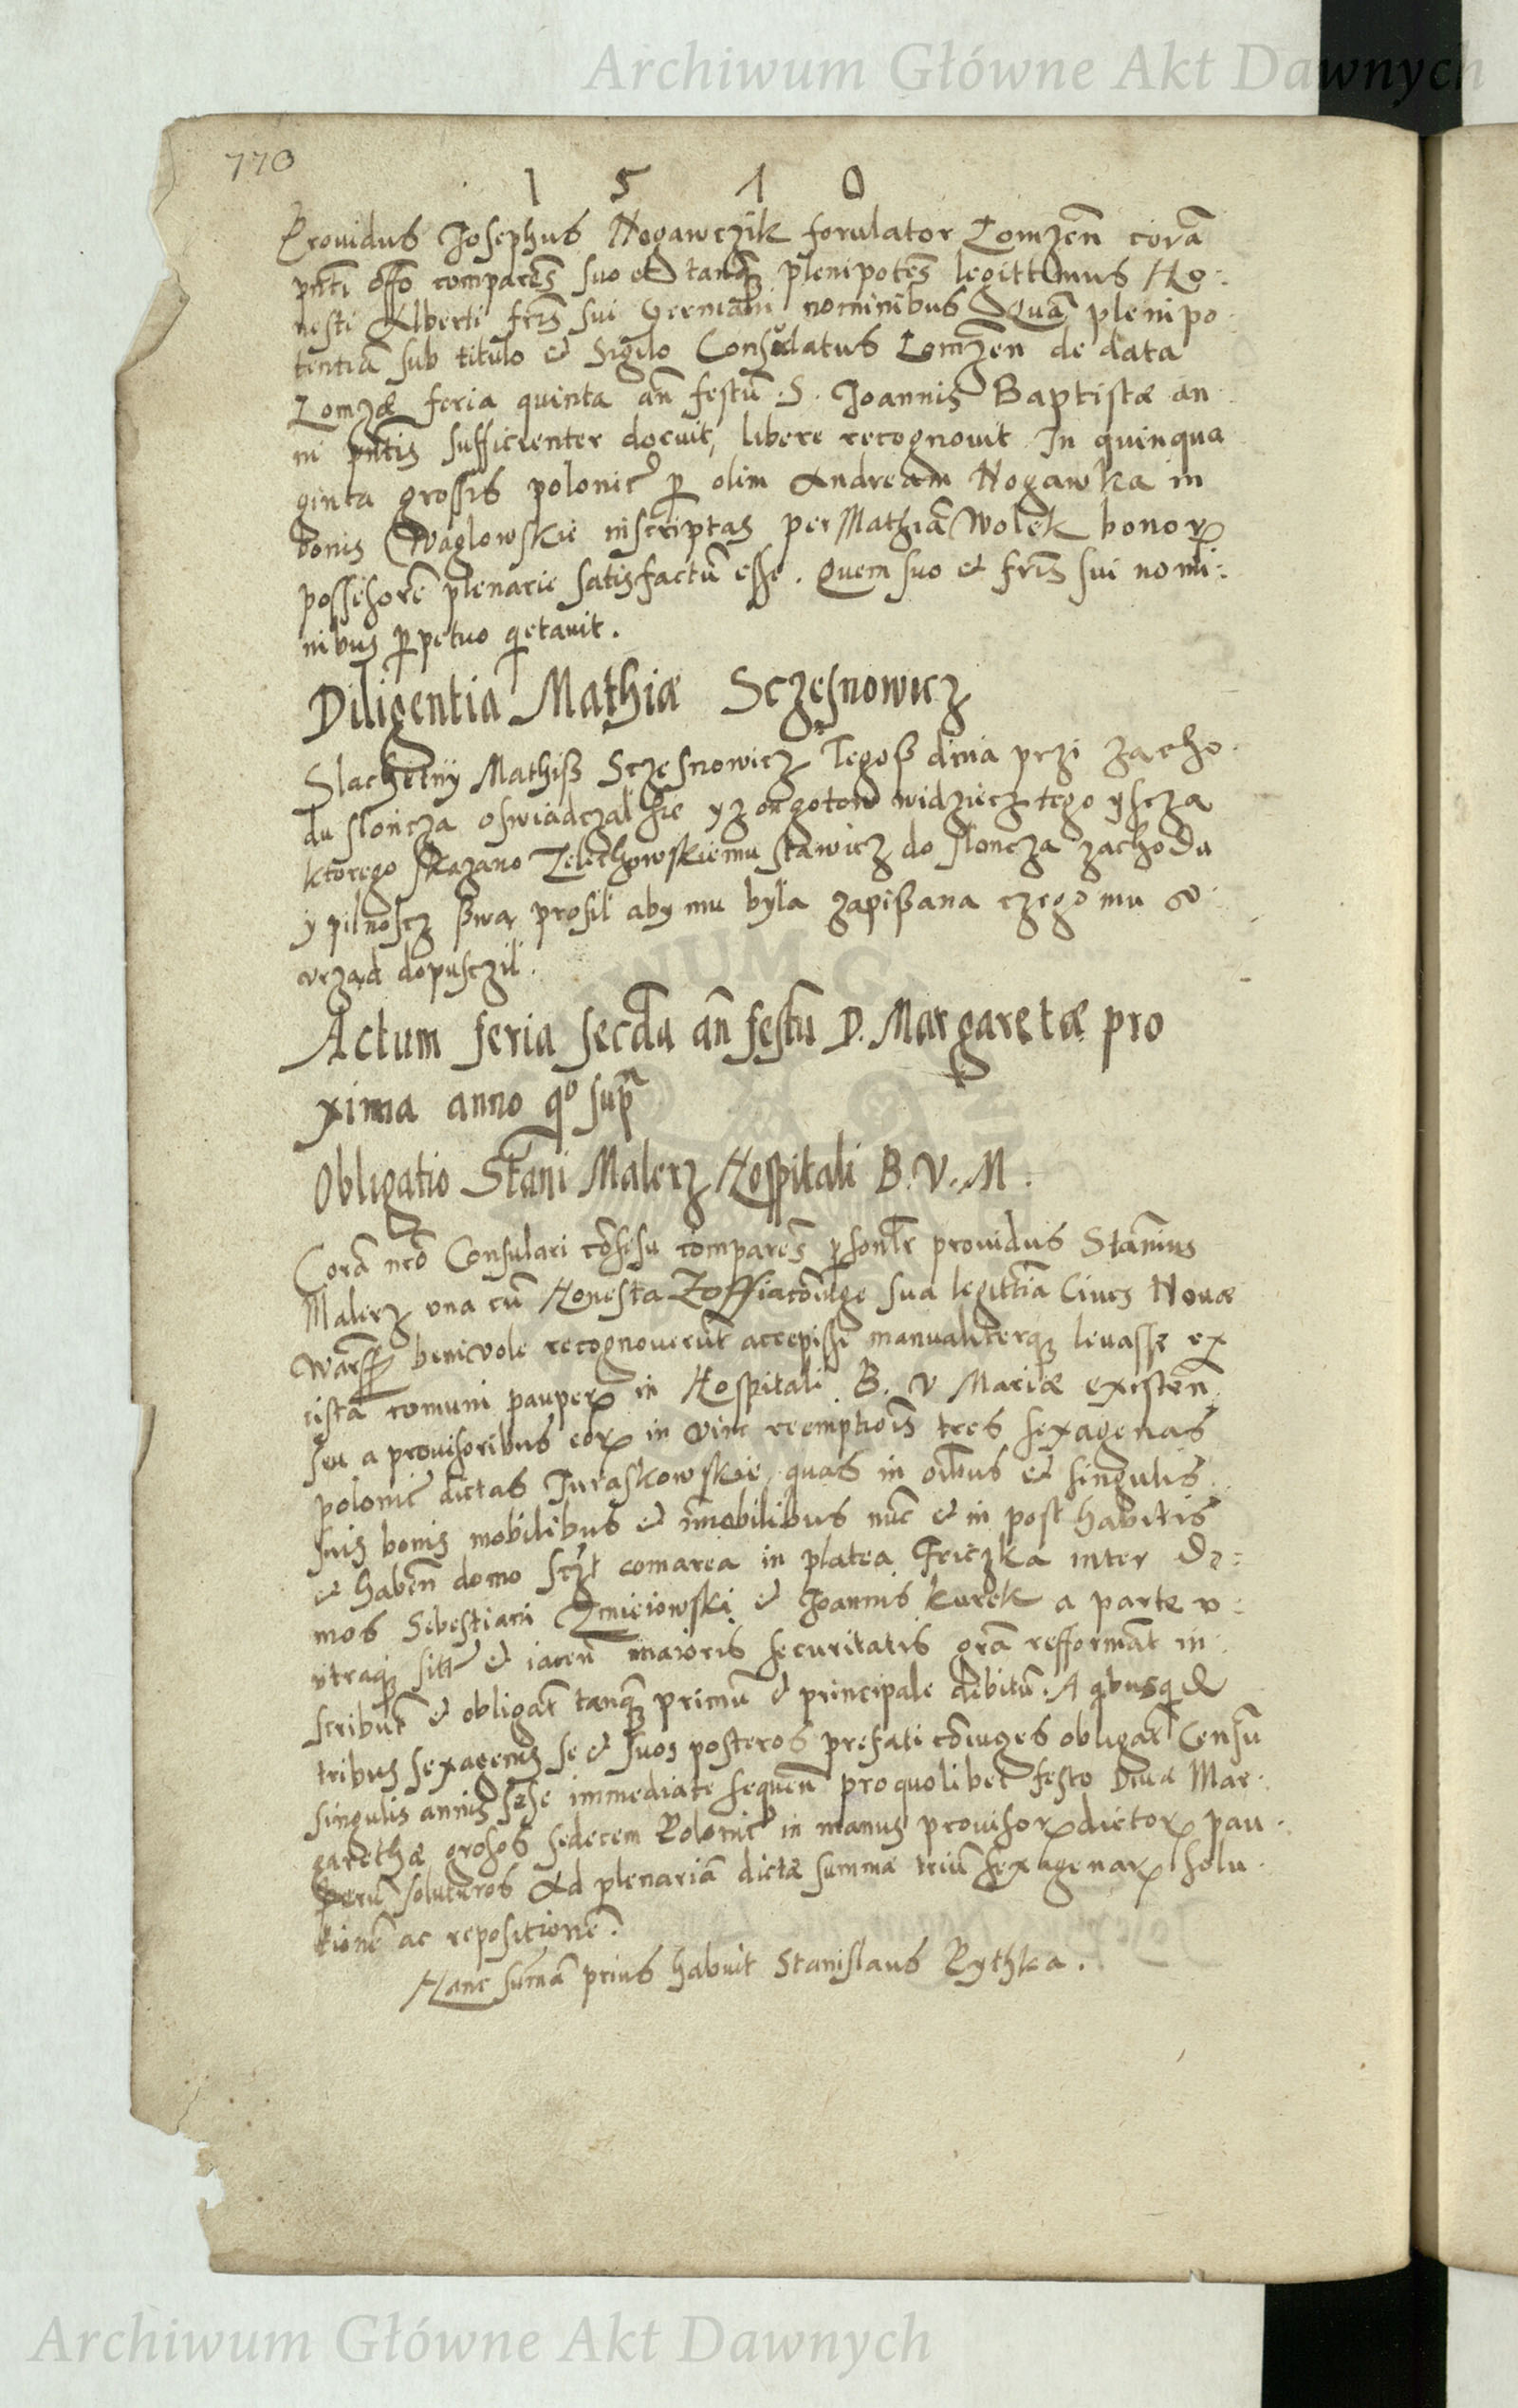 Archiwum Główne Akt Dawnych
770
1 5 1 0
Prouidus Josephus Nogawczik forulator Lomzeñ corã
pñti offo comparẽs suo et tanq̃ plenipotẽs legittimus Ho:
nesti Alberti fris̃ sui Germani nominibus Quã plenipo
tentiã sub titulo et Sigilo Consulatus Lomzeñ de data
Lomzæ feria quinta añ festũ S. Joannis Baptistæ an
ni pñtis sufficienter docuit, libere recognouit In quinqua
ginta grossis polonic̃ per olim Andream Nogawka in
bonis Waglowskie inscriptas per Mathiã Wolek bonoꝝ
possessorẽ plenarie satisfactũ esse. Quem suo et fris̃ sui nomi:
nibus ꝑpetuo q̃etauit.
Diligentia Mathiæ Sczesnowicz
Slachetny Mathiß Sczesnowicz Tegoß dnia przi zacho
du slończa oswiadczal sie yz on gotow widziecz tego yscza
ktorego skazano Zelechowskiemu stawicz do sloncza zachodu
y pilnoscz swą prosil aby mu byla zapißana czego mu
vrząd dopusczil.
Actum feria secda añ festũ D. Margaretæ pro
xima anno q̊ supr̃
Obligatio Stãni Malerz Hospitali B. V. M.
Corã nrõ Consulari cõsessu comparẽs ꝑsonlr̃ prouidus Stãnius
Malerz vna cũ Honesta Zoffia cõiuge sua legittĩa Ciues Nouæ
Wars̃ beniuole recognouerũt accepisse manualiterq̃ leuasse ex
cista comuni pauperꝝ in Hospitali B. V Mariæ existeñ
seu a prouisoribus eorꝝ in vim reemptiõis tres sexagenas
polonic̃ dictas Juraskowskie quas in oĩbus et singulis
suis bonis mobilibus et ĩmobilibus nũc et in post habitis
et habeñ domo scz̃ cum area in platea Friczka inter do:
mos Sebestiani Zmieiowski et Joannis Kurek a parte v:
vtraq̃ sitt̃ et iaceñ maioris securitatis grã refformãt in
scribũt et obligãt tanq̃ primũ et principale debitũ. A qbusq̃
tribus sexagenis se et suos posteros prefati cõiuges obligãt Censũ
singulis annis sese immediate sequeñ pro quolibet festo Diuæ Mar
garethæ grosos sedecem Polonic̃ in manus prouisorꝝ dictorꝝ pau
perũ soluturos Ad plenariã dictæ summæ triũ sexagenarꝝ solu
tionẽ ac repositionẽ.
Hanc sum̃ã prius habuit Stanislaus Rythka.
Archiwum Główne Akt Dawnych